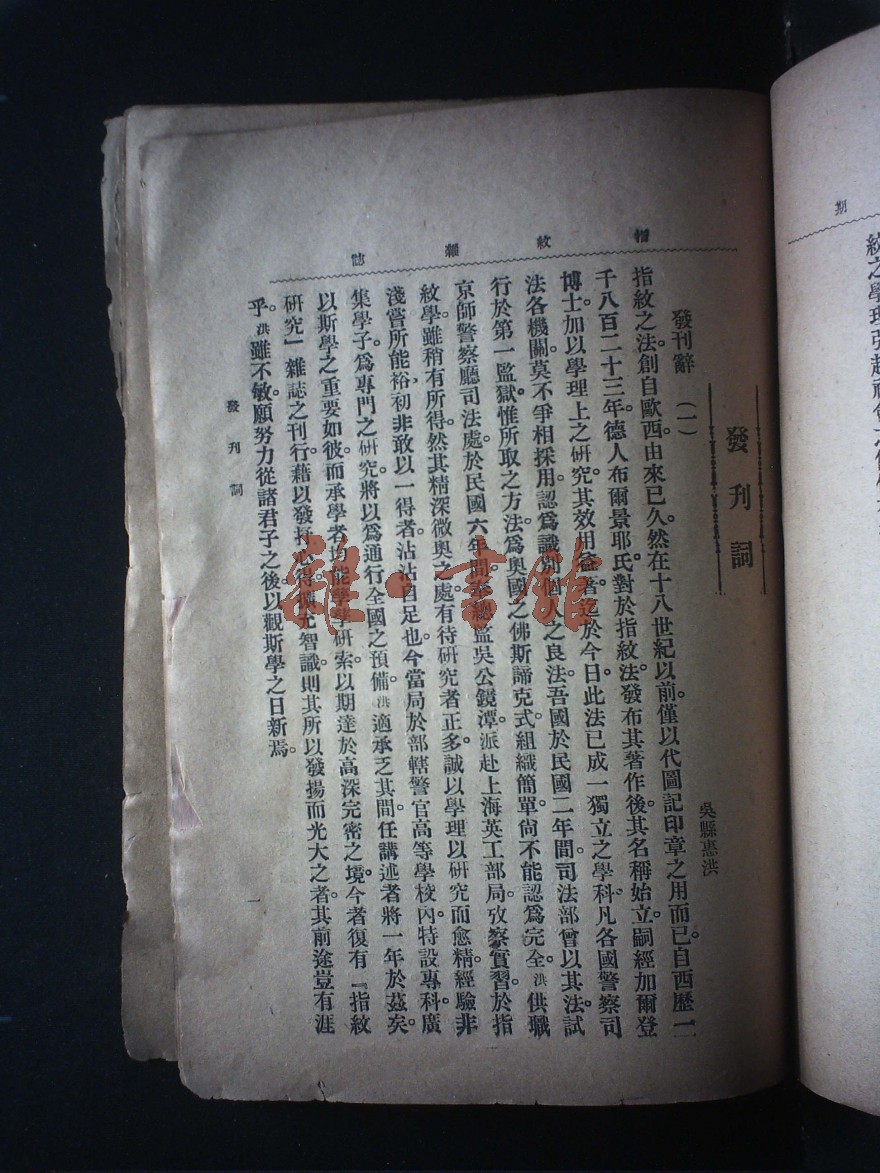 期
紋之學理
指紋雜誌
發刊詞
發刊辭（一）
吳縣惠洪
指紋之法。創自歐西。由來已久。然在十八世紀以前。僅以代圖記印章之用而已。自西歷一
千八百二十三年。德人布爾景耶氏。對於指紋法發布其著作後。其名稱始立。嗣經加爾登
博士。加以學理上之研究。其效用益著。迄於今日。此法已成一獨立之學科。凡各國警察司
法各機關。莫不爭相採用。認爲識別個人之良法。吾國於民國二年間。司法部曾以其法試
行於第一監獄。惟所取之方法。爲奧國之佛斯諦克式。組織簡單。尚不能認爲完全。洪供職
京師警察廳司法處。於民國六年間。奉總監吳公鏡潭。派赴上海英工部局。攷察實習。於指
紋學雖稍有所得。然其精深微奧之處。有待研究者正多。誠以學理以研究而愈精。經驗非
淺嘗所能裕。初非敢以一得者沾沾自足也。今當局於部轄警官高等學校內。特設專科。廣
集學子。爲專門之研究。將以爲通行全國之預備。洪適承乏其間。任講述者將一年於茲矣。
以斯學之重要如彼。而承學者均能孳孳研索。以期達於高深完密之境。今者復有『指紋
研究』雜誌之刊行。藉以發抒心得。擴充智識。則其所以發揚而光大之者。其前途豈有涯
乎。洪雖不敏。願努力從諸君子之後。以觀斯學之日新焉。
發刊詞
一
雜·書館